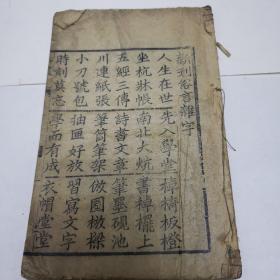 新刻俗言雜字
人生在世 先入學堂 棹椅板櫈
坐杌牀帳 南北大炕 書棹擺上
五經三傳 詩書文章 筆墨硯池
川連紙張 筆筒筆架 倣圈檄樑
小刀號包 抽匣好放 習寫文字
時刻莫忘 學而有成 衣帽堂堂